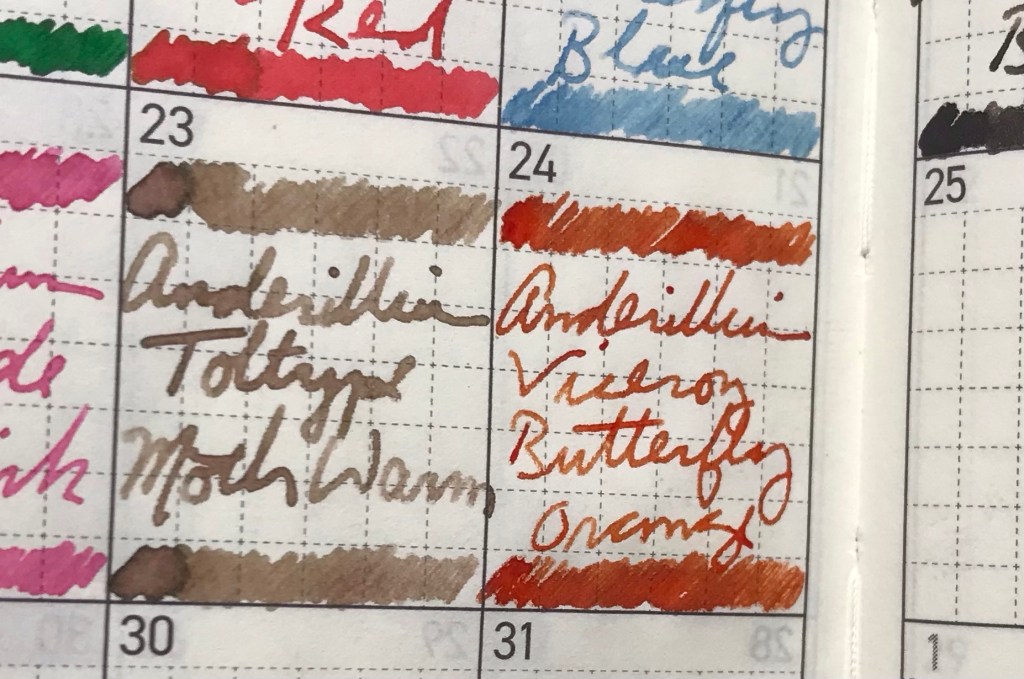 Red
Blue
23
Anderillium
Toltype
Moth Warm
24
Anderillium
Viceroy
Butterfly
Orange
25
30
31
1